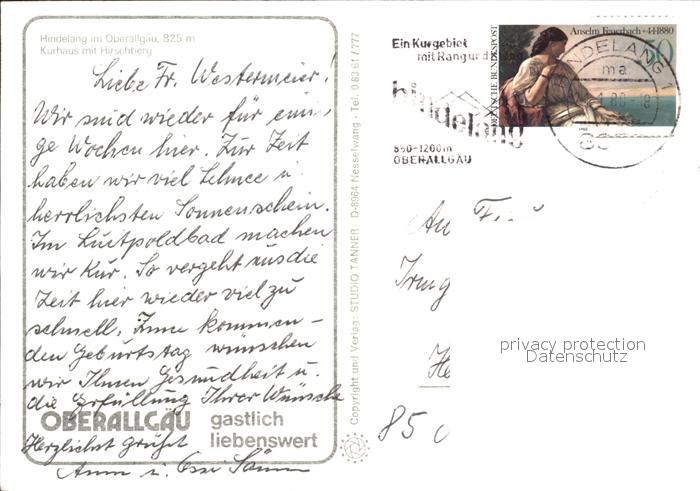 Hindelang im Oberallgäu, 825 m
Kurhaus mit Hirschberg
Liebe Fr. Westermeier!
Wir sind wieder für eini-
ge Wochen hier. Zur Zeit
haben wir viel Schnee u.
herrlichsten Sonnenschein.
Im Luitpoldbad machen
wir Kur. So vergeht uns die
Zeit hier wieder viel zu
schnell. Zum kommen-
den Geburtstag wünschen
wir Ihnen Gesundheit u.
die Erfüllung Ihrer Wünsche
OBERALLGÄU gastlich
liebenswert
Herzlichst grüßt
Copyright und Verlag: STUDIO TANNER D-8964 Nesselwang - Tel. 0 83 61 / 777
Ein Kurgebiet
mit Rang und
hindelang
850-1200m
OBERALLGÄU
Anselm Feuerbach + 4·1·1880
DEUTSCHE BUNDESPOST
50
HINDELANG 1
ma
An F.
850
privacy protection
Datenschutz